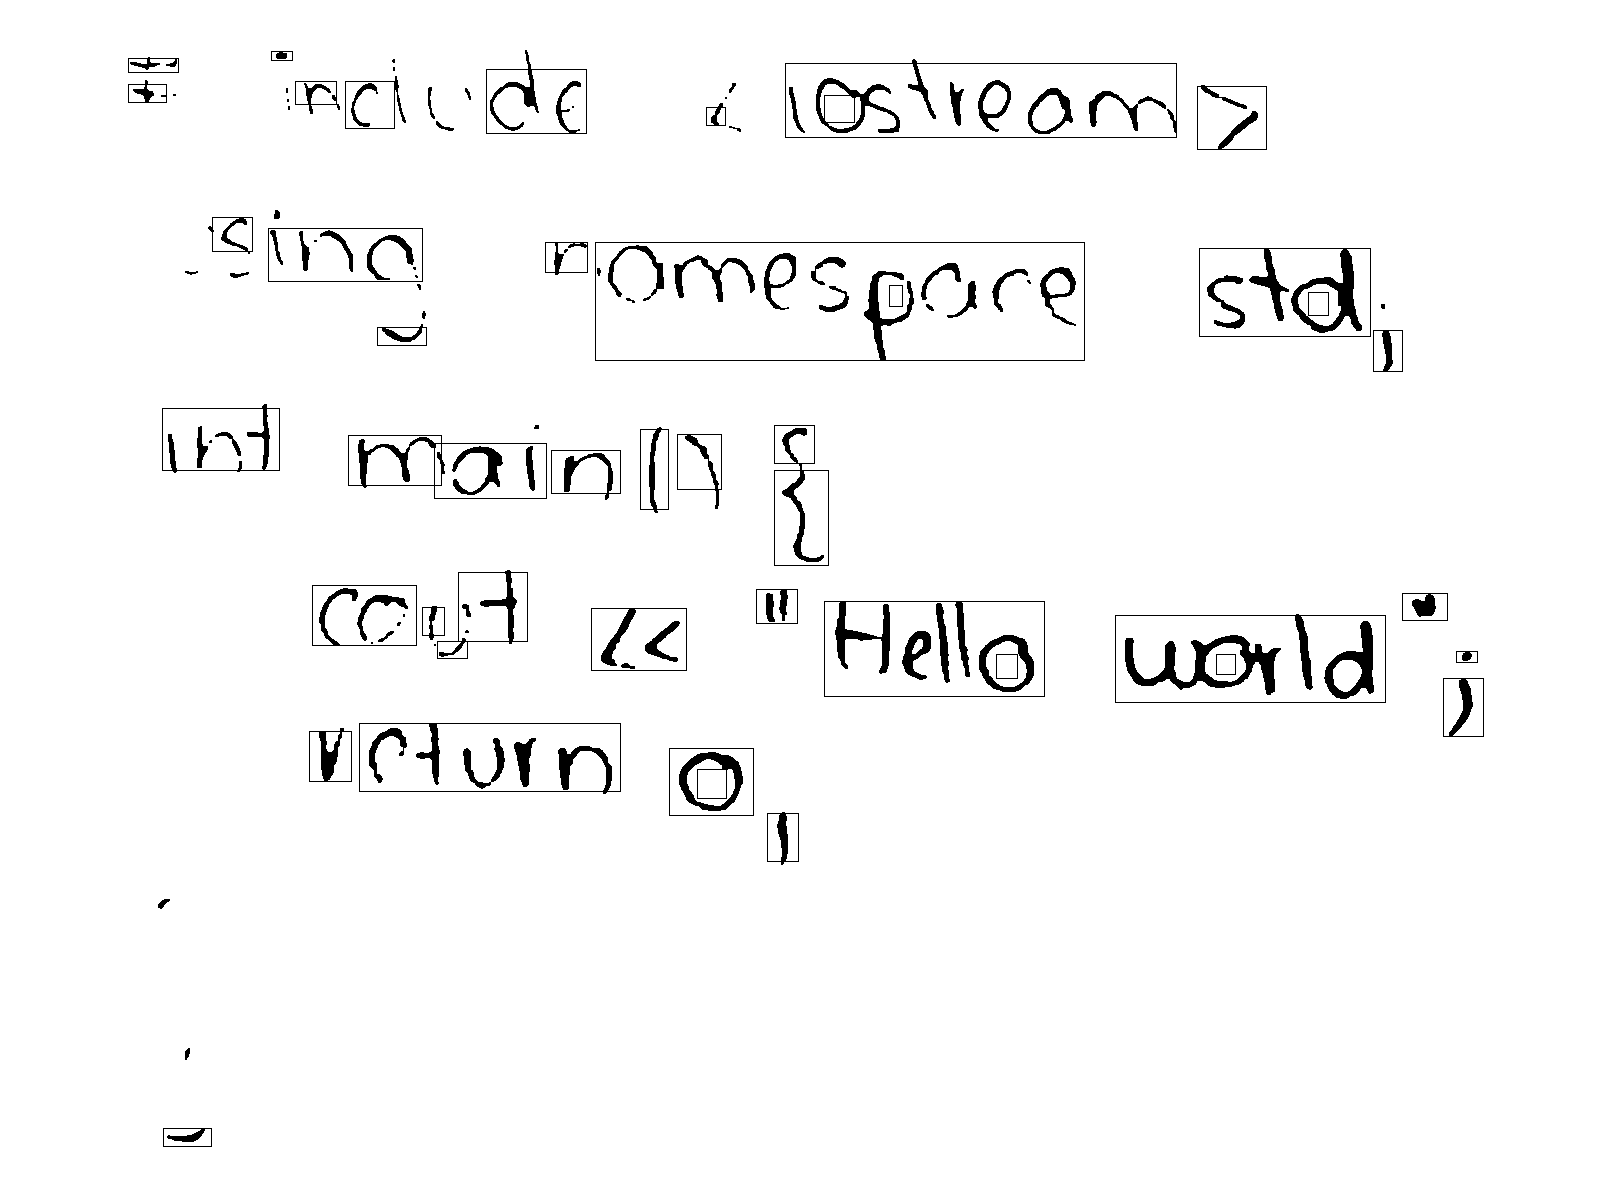 #include <iostream>
using namespace std;
int main() {
cout << "Hello world";
return 0;
}